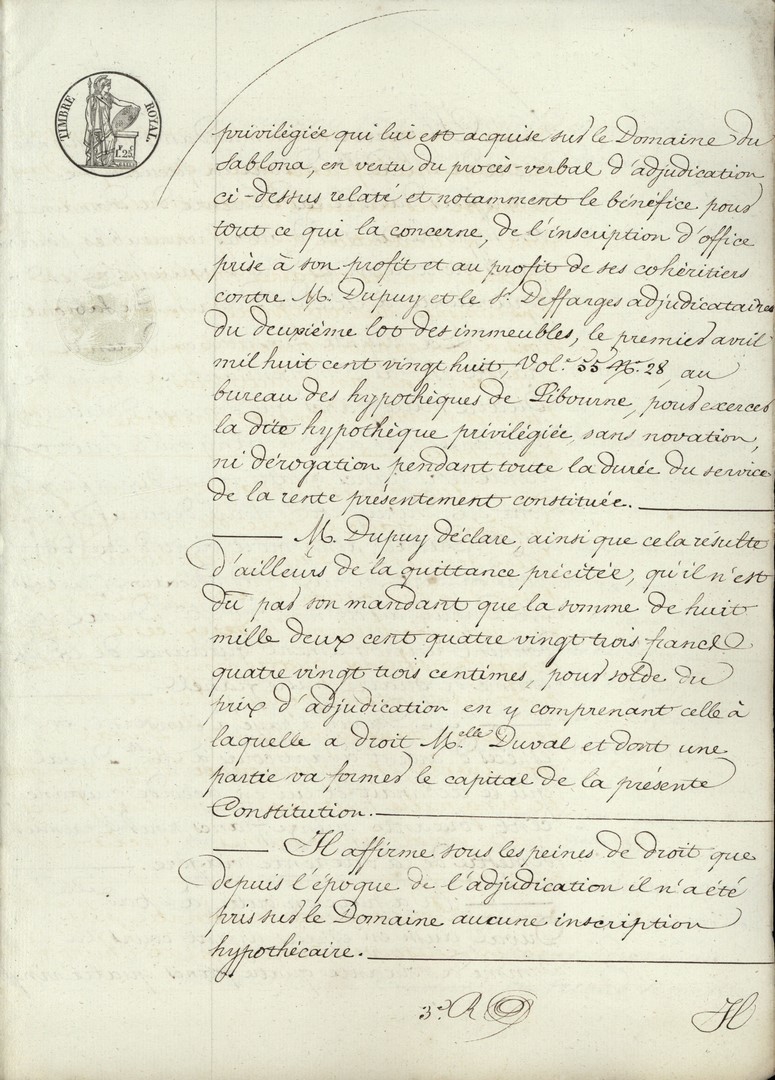 TIMBRE ROYAL
1.F 25.C
privilégiée qui lui est acquise sur le Domaine du
Sablona, en vertu du procès-verbal d'adjudication
ci-dessus relaté et notamment le bénéfice pour
tout ce qui la concerne, de l'inscription d'office
prise à son profit et au profit de ses cohéritiers
contre M. Dupuy et le S.r Deffarges adjudicataires
du deuxième lot des immeubles, le premier avril
mil huit cent vingt huit, Vol.e 35 N.o 28, au
bureau des hypothèques de Libourne, pour exercer
la dite hypothèque privilégiée, sans novation,
ni dérogation pendant toute la durée du service
de la rente présentement constituée.
M. Dupuy déclare, ainsi que cela résulte
d'ailleurs de la quittance précitée, qu'il n'est
dû par son mandant que la somme de huit
mille deux cent quatre vingt trois francs
quatre vingt trois centimes, pour solde du
prix d'adjudication en y comprenant celle à
laquelle a droit M.elle Duval et dont une
partie va former le capital de la présente
Constitution.
Il affirme sous les peines de droit que
depuis l'époque de l'adjudication il n'a été
pris sur le Domaine aucune inscription
hypothécaire.
3.e R